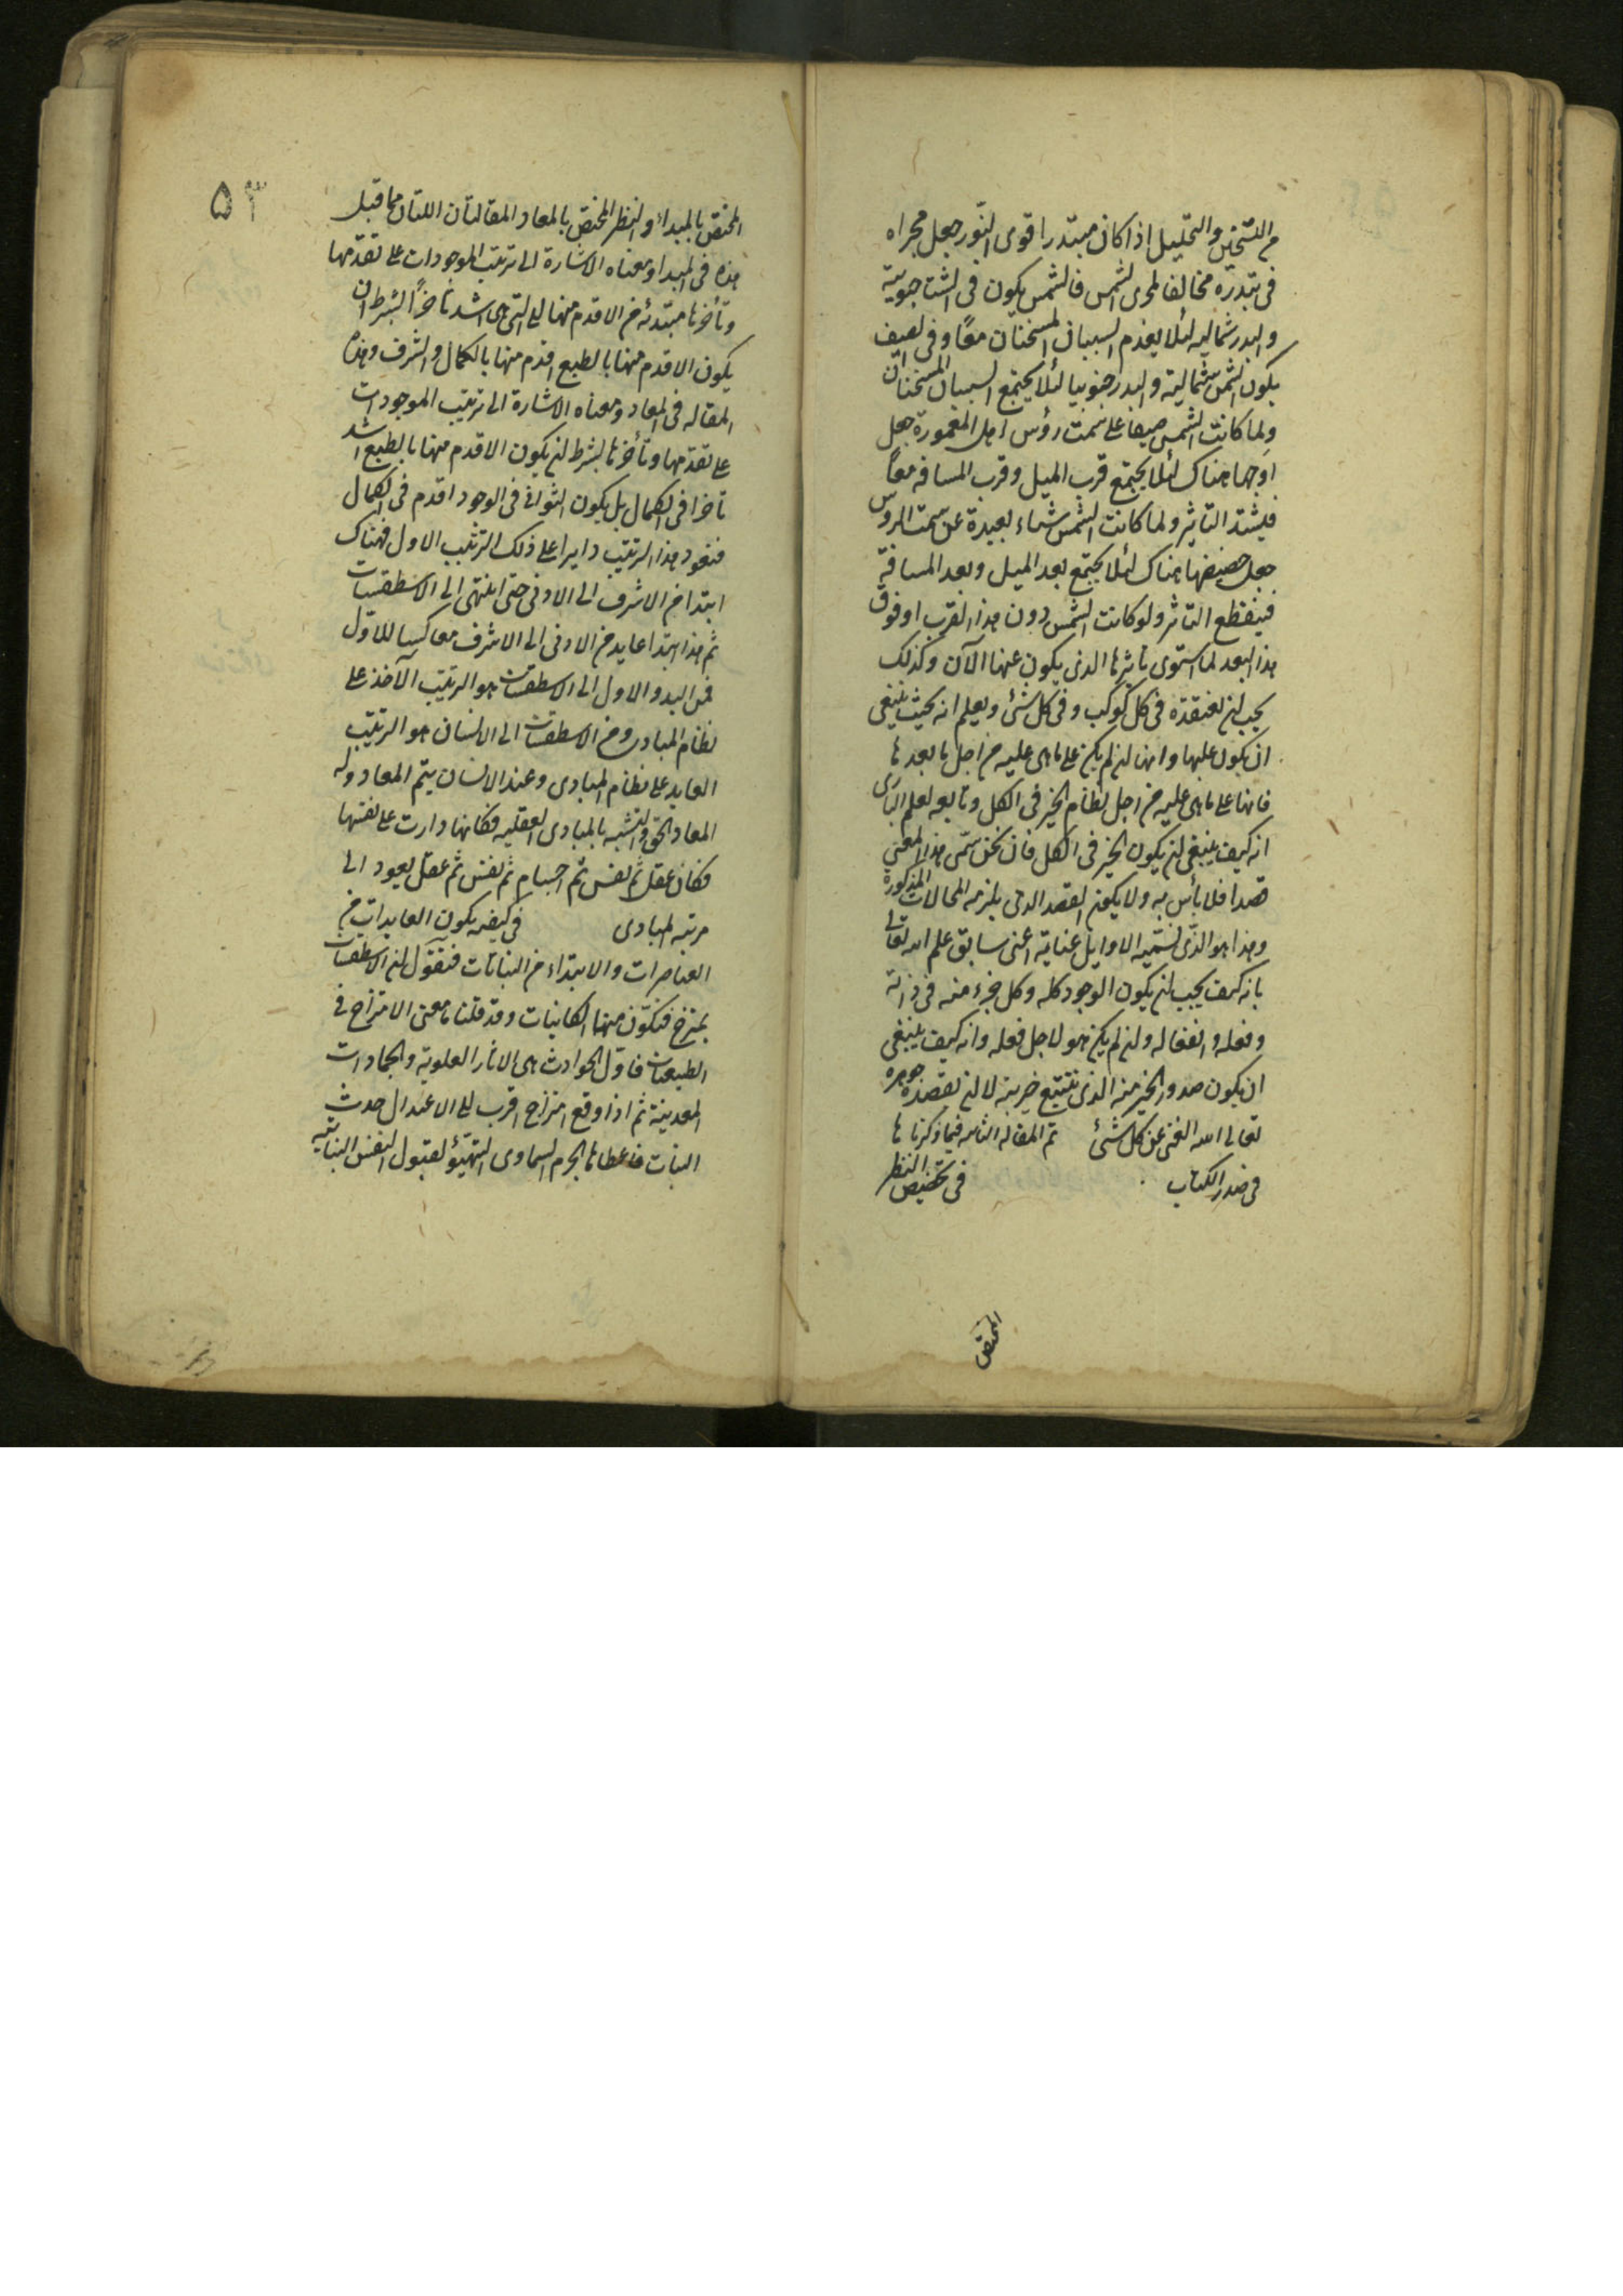 من التسخين والتحليل اذا كان مبتدرا قوى النور جعل مجراه
فى تبدره مخالفا لمجرى الشمس فالشمس يكون فى الشتا جنوبية
والبدر شماليه لئلا يعدم السببان المسخنان معًا وفى الصيف
يكون الشمس شمالية والبدر جنوبيا لئلا يجتمع السببان المسخنان
ولما كانت الشمس صيفا على سمت رؤس اهل المعمورة جعل
اوجها هناك لئلا يجتمع قرب الميل وقرب المسافه معًا
فيشتد التاثير ولما كانت الشمس شتاء بعيدة عن سمت الروس
جعل حضيضها هناك لئلا يجتمع بعد الميل وبعد المسافة
فينقطع التاثر ولو كانت الشمس دون هذا القرب او فوق
هذا البعد لما استوى تاثيرها الذى يكون عنها الآن وكذلك
يجب ان تعتقده فى كل كوكب وفى كل شئ ويعلم انه بحيث ينبغى
ان يكون عليها وانها ان لم يكن على ما هى عليه من اجل ما بعدها
فانها على ما هى عليه من اجل نظام الخير فى الكل وتابعه لعلم البارى
انه كيف ينبغى ان يكون الخير فى الكل فان نحن سمّى هذا المعنى
قصدا فلا بأس به ولا يكون القصد الذى يلزمه المحالات المذكورة
وهذا هو الذى تسميه الاوايل عناية اعنى سابق علم الله تعالى
بانه كيف يجب ان يكون الوجود كله وكل جزء منه فى ذاته
وفعله وانفعاله وان لم يكن هو لاجل فعله وانه كيف ينبغى
ان يكون صدور الخير منه الذى تتبع خيريته لا ان تقصده جوهره
تعالى الله الغنى عن كل شئ تم المقاله الثانيه فيما ذكرناها
فى صدر الكتاب فى تخصيص النظر
المختص
٥٣
المختص بالمبداء والنظر المختص بالمعاد المقالتان اللتان مما قبل
هذه فى المبدا ومعناه الاشارة الى ترتيب الموجودات على تقدمها
وتأخرها مبتدئه من الاقدم منها الى التى هى اشد تأخرًا بشرط ان
يكون الاقدم منها بالطبع اقدم منها بالكمال والشرف وهذه
المقاله فى المعاد ومعناه الاشارة الى ترتيب الموجودات
على تقدمها وتأخرها بشرط ان يكون الاقدم منها بالطبع اشد
تاخرا فى الكمال بل يكون الثوانى فى الوجود اقدم فى الكمال
فنعود هذا الترتيب دايرا على ذلك الترتيب الاول فهناك
ابتدا من الاشرف الى الادنى حتى انتهى الى الاسطقسات
ثم هذا ابتدا عايد من الادنى الى الاشرف معاكسا للاول
فمن البدو الاول الى الاسطقسات هو الترتيب الآخذ على
نظام المبادى ومن الاسطقسات الى الانسان هو الترتيب
العايد على نظام المبادى وعند الانسان يتم المعاد وله
المعاد الحق والتشبه بالمبادى العقليه فكانها دارت على نفسها
فكان عقل ثم نفس ثم اجسام ثم نفس ثم عقل يعود الى
مرتبه المبادى فى كيفيه يكون العايدات من
العناصرات والابتداء من النباتات فنقول ان الاسطقسات
يمتزج فتكوّن منها الكاينات وقد قلنا معنى الامتزاج فى
الطبيعيات فاول الحوادث هى الاثار العلوية والجمادات
المعدنية ثم اذا وقع امتزاج اقرب الى الاعتدال حدث
النبات فاعطاها الجرم السماوى التهيؤ لقبول النفس النباتيه